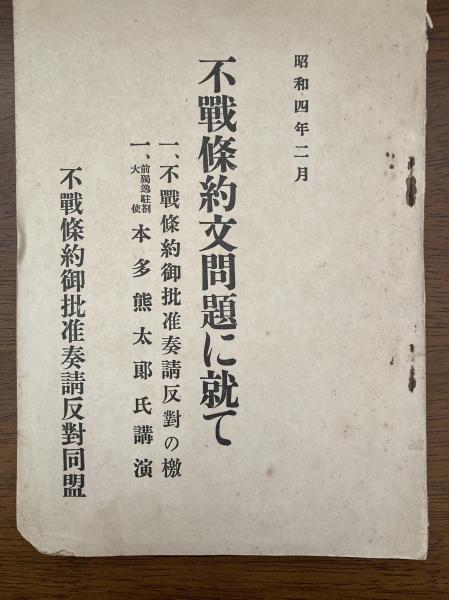 昭和四年二月
不戰條約文問題に就て
一、不戰條約御批准奏請反對の檄
一、前獨逸駐劄大使 本多熊太郎氏講演
不戰條約御批准奏請反對同盟